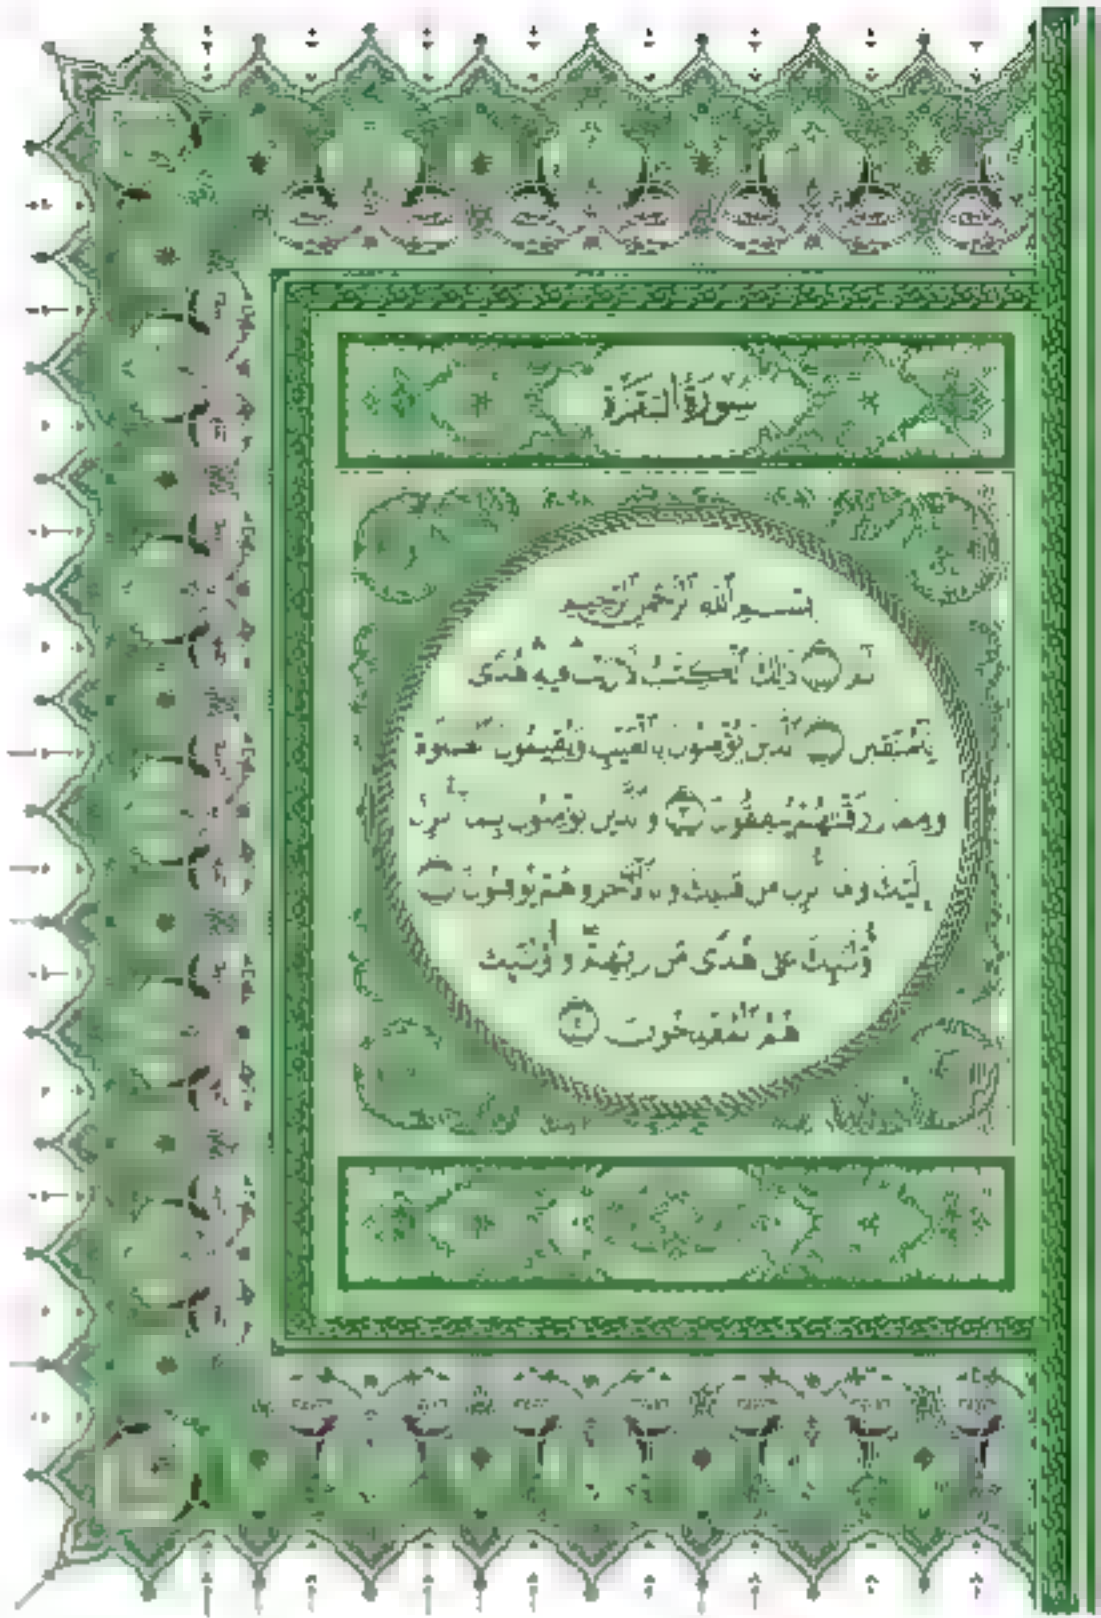 سُورَةُ البَقَرَةِ
بِسْمِ ٱللَّهِ ٱلرَّحْمَٰنِ ٱلرَّحِيمِ
الٓمٓ ١ ذَٰلِكَ ٱلْكِتَٰبُ لَا رَيْبَ فِيهِ هُدًى
لِّلْمُتَّقِينَ ٢ ٱلَّذِينَ يُؤْمِنُونَ بِٱلْغَيْبِ وَيُقِيمُونَ ٱلصَّلَوٰةَ
وَمِمَّا رَزَقْنَٰهُمْ يُنفِقُونَ ٣ وَٱلَّذِينَ يُؤْمِنُونَ بِمَآ أُنزِلَ
إِلَيْكَ وَمَآ أُنزِلَ مِن قَبْلِكَ وَبِٱلْءَاخِرَةِ هُمْ يُوقِنُونَ ٤
أُو۟لَٰٓئِكَ عَلَىٰ هُدًى مِّن رَّبِّهِمْ وَأُو۟لَٰٓئِكَ
هُمُ ٱلْمُفْلِحُونَ ٥